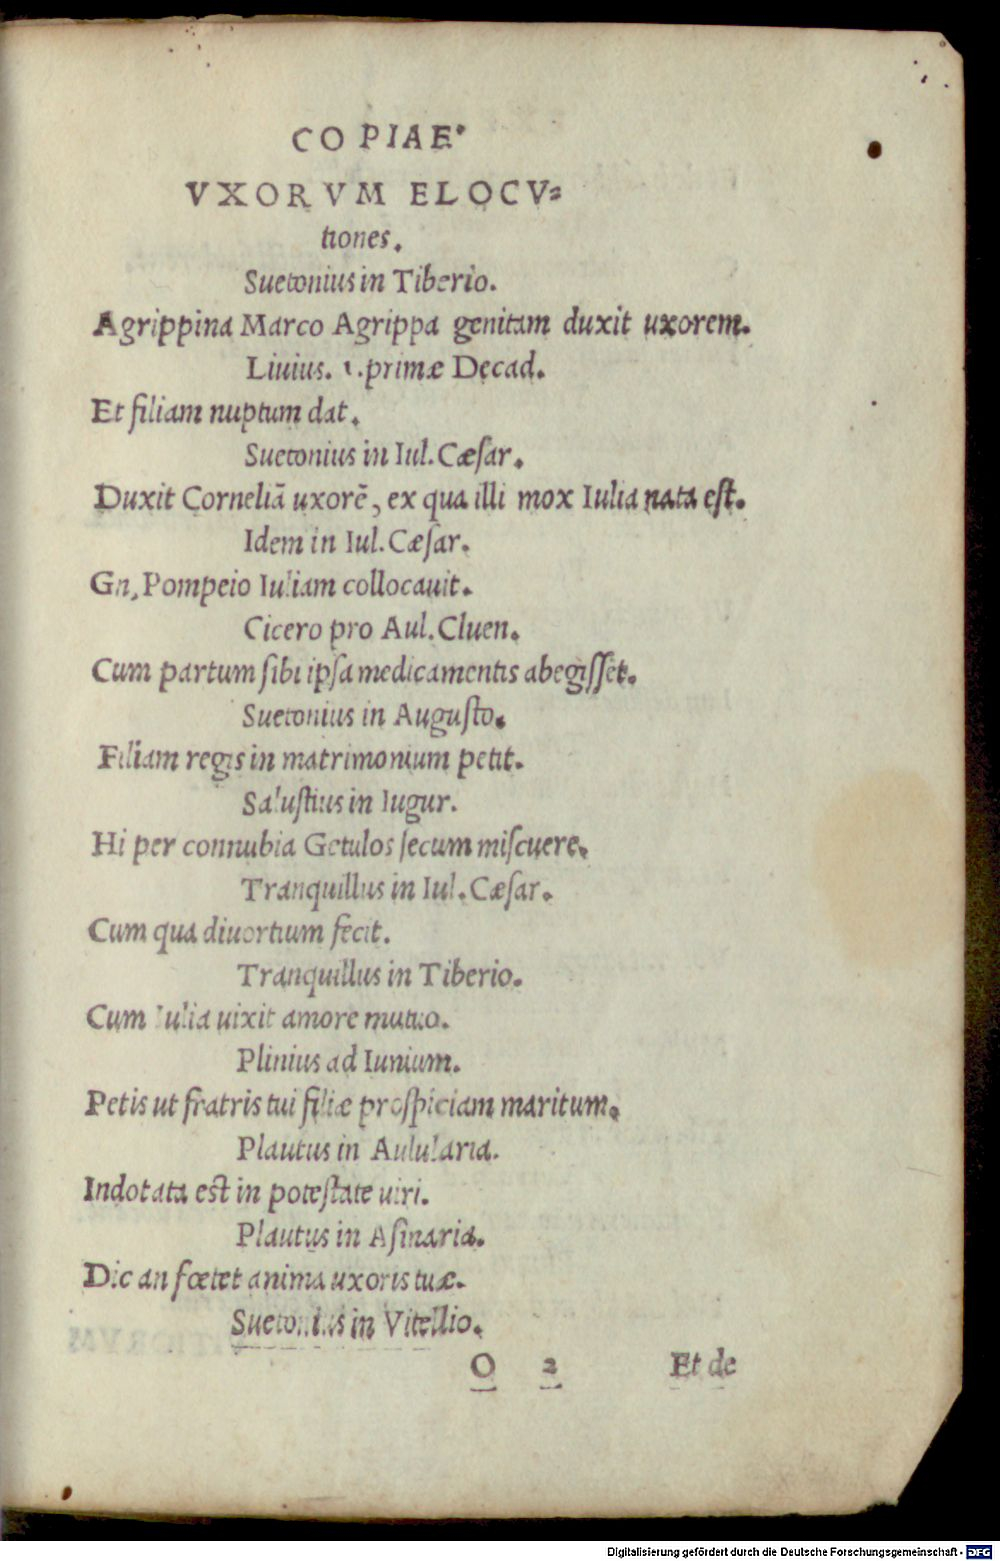 COPIAE.
VXORVM ELOCV=
tiones.
Suetonius in Tiberio.
Agrippina Marco Agrippa genitam duxit uxorem.
Liuius. 1. primæ Decad.
Et filiam nuptum dat.
Suetonius in Iul. Cæſar.
Duxit Corneliā uxorē, ex qua illi mox Iulia nata eſt.
Idem in Iul. Cæſar.
Gn. Pompeio Iuliam collocauit.
Cicero pro Aul. Cluen.
Cum partum ſibi ipſa medicamentis abegiſſet.
Suetonius in Auguſto.
Filiam regis in matrimonium petit.
Saluſtius in Iugur.
Hi per connubia Getulos ſecum miſcuere.
Tranquillus in Iul. Cæſar.
Cum qua diuortium fecit.
Tranquillus in Tiberio.
Cum Iulia uixit amore mutuo.
Plinius ad Iunium.
Petis ut fratris tui filiæ proſpiciam maritum.
Plautus in Aulularia.
Indotata eſt in poteſtate uiri.
Plautus in Aſinaria.
Dic an fœtet anima uxoris tuæ.
Suetonius in Vitellio.
O 2 Et de
Digitalisierung gefördert durch die Deutsche Forschungsgemeinschaft - DFG